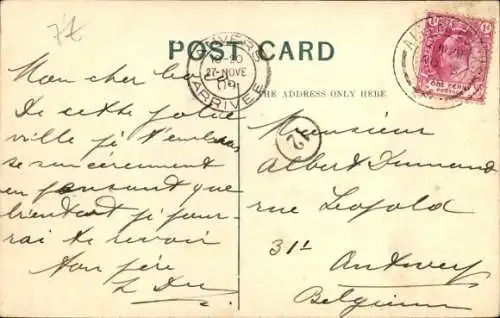 POST CARD
THE ADDRESS ONLY HERE
ANVERS
10-20
27 NOVE
09
ARRIVEE
ONE PENNY
12
Mon cher
De cette jolie
ville je t'embrasse
se sincèrement
en pensant que
bientôt je pour-
rai te revoir
Ton père
Monsieur
Albert
rue Léopold
31
Antwerp
Belgium